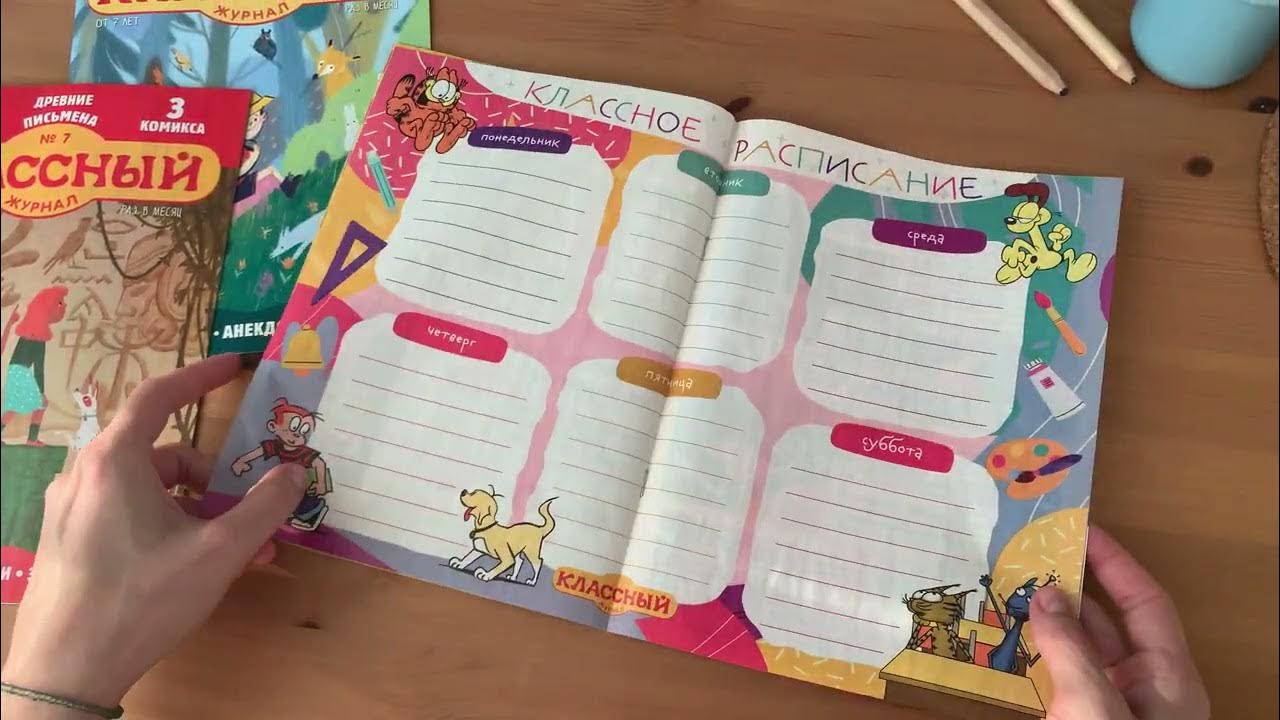 ЖУРНАЛ
ОТ 7 ЛЕТ
РАЗ В МЕСЯЦ
ДРЕВНИЕ
ПИСЬМЕНА
3
КОМИКСА
№ 7
ССНЫЙ
ЖУРНАЛ
РАЗ В МЕСЯЦ
• АНЕКД
КЛАССНОЕ РАСПИСАНИЕ
понедельник
вторник
среда
четверг
пятница
суббота
КЛАССНЫЙ